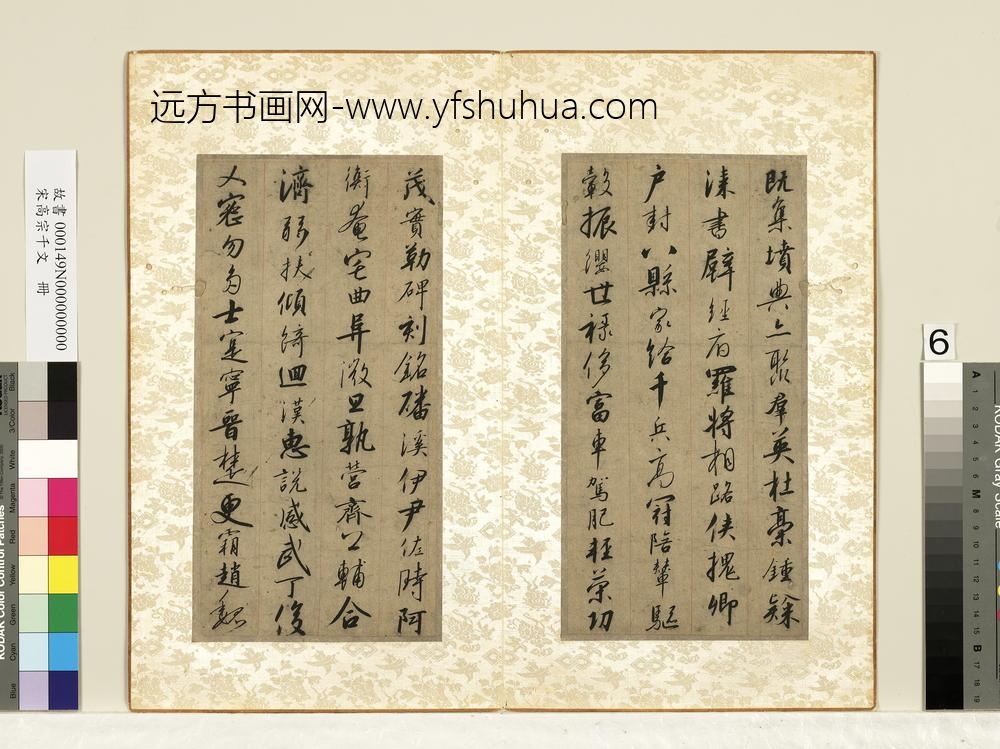 远方书画网-www.yfshuhua.com
既集墳典亦聚群英杜稾鍾隸
漆書壁經府羅將相路俠槐卿
户封八縣家給千兵高冠陪輦驅
轂振纓世禄侈富車駕肥輕策功
茂實勒碑刻銘磻溪伊尹佐時阿
衡奄宅曲阜微旦孰營齊公輔合
濟弱扶傾綺迴漢惠說感武丁俊
乂密勿多士寔寧晉楚更霸趙魏
故書 000149N000000000
宋高宗千文 冊
6
KODAK Color Control Patches
Blue
Cyan
Green
Yellow
Red
Magenta
White
3/Color
Black
KODAK Gray Scale
A 1 2 3 4 5 6 M 8 9 10 11 12 13 14 15 B 17 18 19